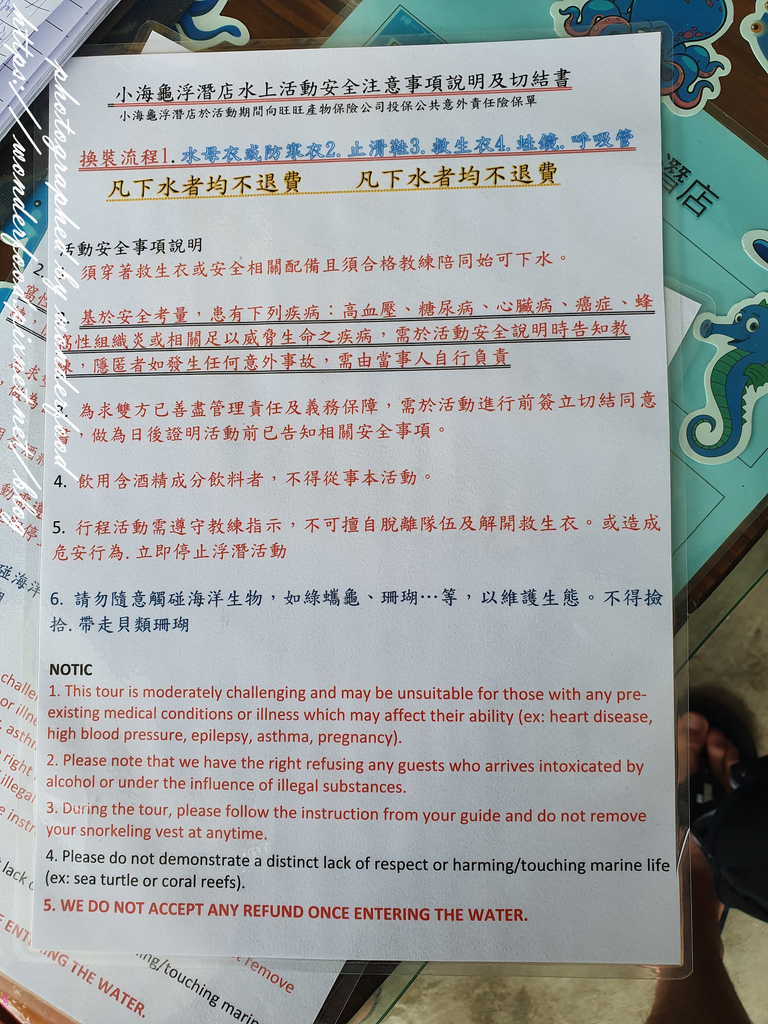 小海龜浮潛店水上活動安全注意事項說明及切結書
小海龜浮潛店於活動期間向旺旺產物保險公司投保公共意外責任險保單
換裝流程1. 水母衣或防寒衣2. 止滑鞋3. 救生衣4. 蛙鏡. 呼吸管
凡下水者均不退費 凡下水者均不退費
活動安全事項說明
須穿著救生衣或安全相關配備且須合格教練陪同始可下水。
基於安全考量，患有下列疾病：高血壓、糖尿病、心臟病、癌症、蜂
窩性組織炎或相關足以威脅生命之疾病，需於活動安全說明時告知教
練，隱匿者如發生任何意外事故，需由當事人自行負責
3. 為求雙方已善盡管理責任及義務保障，需於活動進行前簽立切結同意
書，做為日後證明活動前已告知相關安全事項。
4. 飲用含酒精成分飲料者，不得從事本活動。
5. 行程活動需遵守教練指示，不可擅自脫離隊伍及解開救生衣。或造成
危安行為. 立即停止浮潛活動
6. 請勿隨意觸碰海洋生物，如綠蠵龜、珊瑚…等，以維護生態。不得撿
拾. 帶走貝類珊瑚
NOTIC
1. This tour is moderately challenging and may be unsuitable for those with any pre-
existing medical conditions or illness which may affect their ability (ex: heart disease,
high blood pressure, epilepsy, asthma, pregnancy).
2. Please note that we have the right refusing any guests who arrives intoxicated by
alcohol or under the influence of illegal substances.
3. During the tour, please follow the instruction from your guide and do not remove
your snorkeling vest at anytime.
4. Please do not demonstrate a distinct lack of respect or harming/touching marine life
(ex: sea turtle or coral reefs).
5. WE DO NOT ACCEPT ANY REFUND ONCE ENTERING THE WATER.
photographed by wonderfood
潛店
ing/touching marin
remove
ENTERING THE WATER.